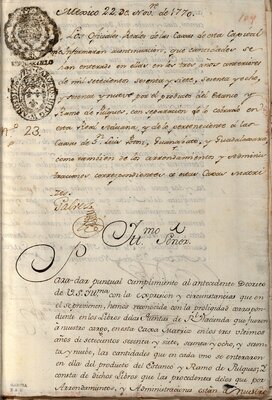 Mexico 22 de Nov.re de 1770.
104
Los Oficiales Reales de las Caxas de esta Capital
informarán a continuacion, que cantidades se
han enterado en ellas en los tres años anteriores
de mil setecientos sesenta y siete, sesenta y ocho,
y sesenta y nueve por el producto del Estanco y
Ramo de Pulques, con separacion de lo cobrado en
esta Real Aduana, y de lo perteneciente a las
Caxas de Sn. Luis Potosi, Guanajuato, y Guadalaxara
como tambien de los Arrendamientos y Adminis
traciones correspondientes a estas Caxas Matri
zes.
N.o 23.
Galvez
Illmo Sr
Señor.
Para dar puntual cumplimiento al antecedente Decreto
de V.S. Illma. con la expresion y circunstancias que en
el se previenen, hemos reconocido con la prolixidad correspon
diente en los Libros de las Cuentas de Rl. Hacienda que fueron
a nuestro cargo, en esta Caxa Matriz en los tres ultimos
años de setecientos sesenta y siete, sesenta y ocho, y sesen
ta y nueve, las cantidades que en cada uno se enteraron
en ella del producto del Estanco y Ramo de Pulques, y
consta de dichos Libros que las procedentes de los que por
Arrendamientos, y Administraciones están a nuestro